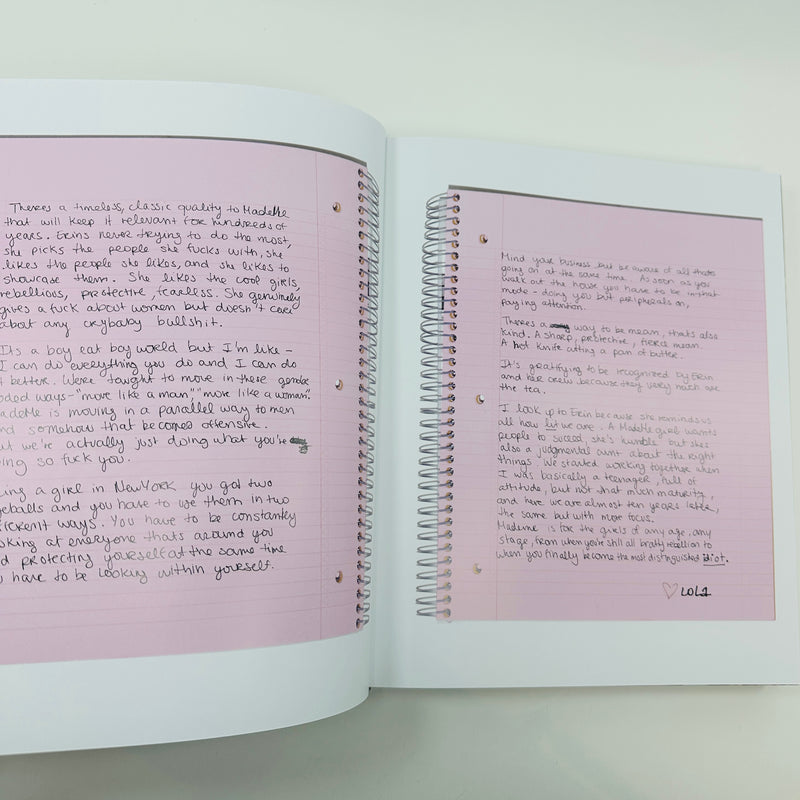 Theres a timeless, classic quality to Madelle
that will keep it relevant for hundreds of
years. Erins never trying to do the most,
she picks the people she fucks with, she
likes the people she likes, and she likes to
showcase them. She likes the cool girls,
rebellious, protective, fearless. She genuinely
gives a fuck about women but doesn't care
about any crybaby bullshit.
Its a boy eat boy world but I'm like -
I can do everything you do and I can do
it better. We're taught to move in these gender
coded ways - "move like a man," "more like a woman".
Madelle is moving in a parallel way to men
and somehow that becomes offensive.
But we're actually just doing what you're
doing so fuck you.
Being a girl in New York you got two
eyeballs and you have to use them in two
different ways. You have to be constantly
looking at everyone thats around you
and protecting yourself at the same time
you have to be looking within yourself.
Mind your business but be aware of all thats
going on at the same time. As soon as you
walk out the house you have to be in that
mode - doing you but peripherals on,
paying attention.
Theres a way to be mean, thats also
kind. A sharp, protective, fierce mean.
A hot knife cutting a pan of butter.
It's gratifying to be recognized by Erin
and her crew because they very much are
the tea.
I look up to Erin because she reminds us
all how lit we are. A Madelle girl wants
people to succeed, she's humble but shes
also a judgmental aunt about the right
things. We started working together when
I was basically a teenager, full of
attitude, but not that much maturity,
and here we are almost ten years later,
the same but with more focus.
Madelle is for the girls of any age, any
stage, from when you're still all bratty rebellion to
when you finally become the most distinguished idiot.
♡ LOLA